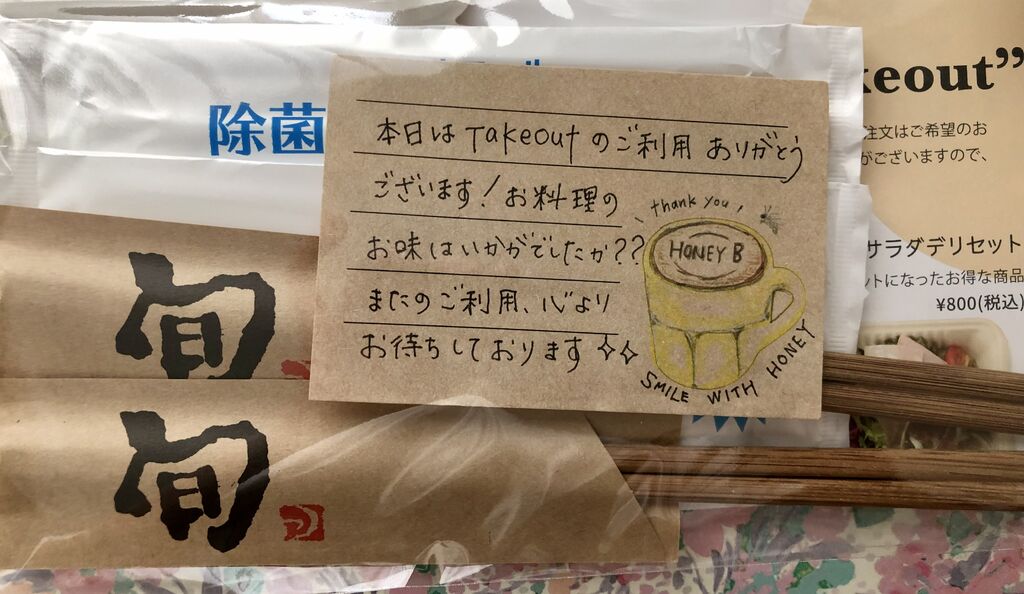 除菌
本日は Takeout のご利用 ありがとう
ございます！お料理の
お味はいかがでしたか??
またのご利用、心より
お待ちしております✧✧
thank you,
HONEY B
SMILE WITH HONEY
旬
旬
keout”
注文はご希望のお
がございますので、
サラダデリセット
ットになったお得な商品
¥800(税込)